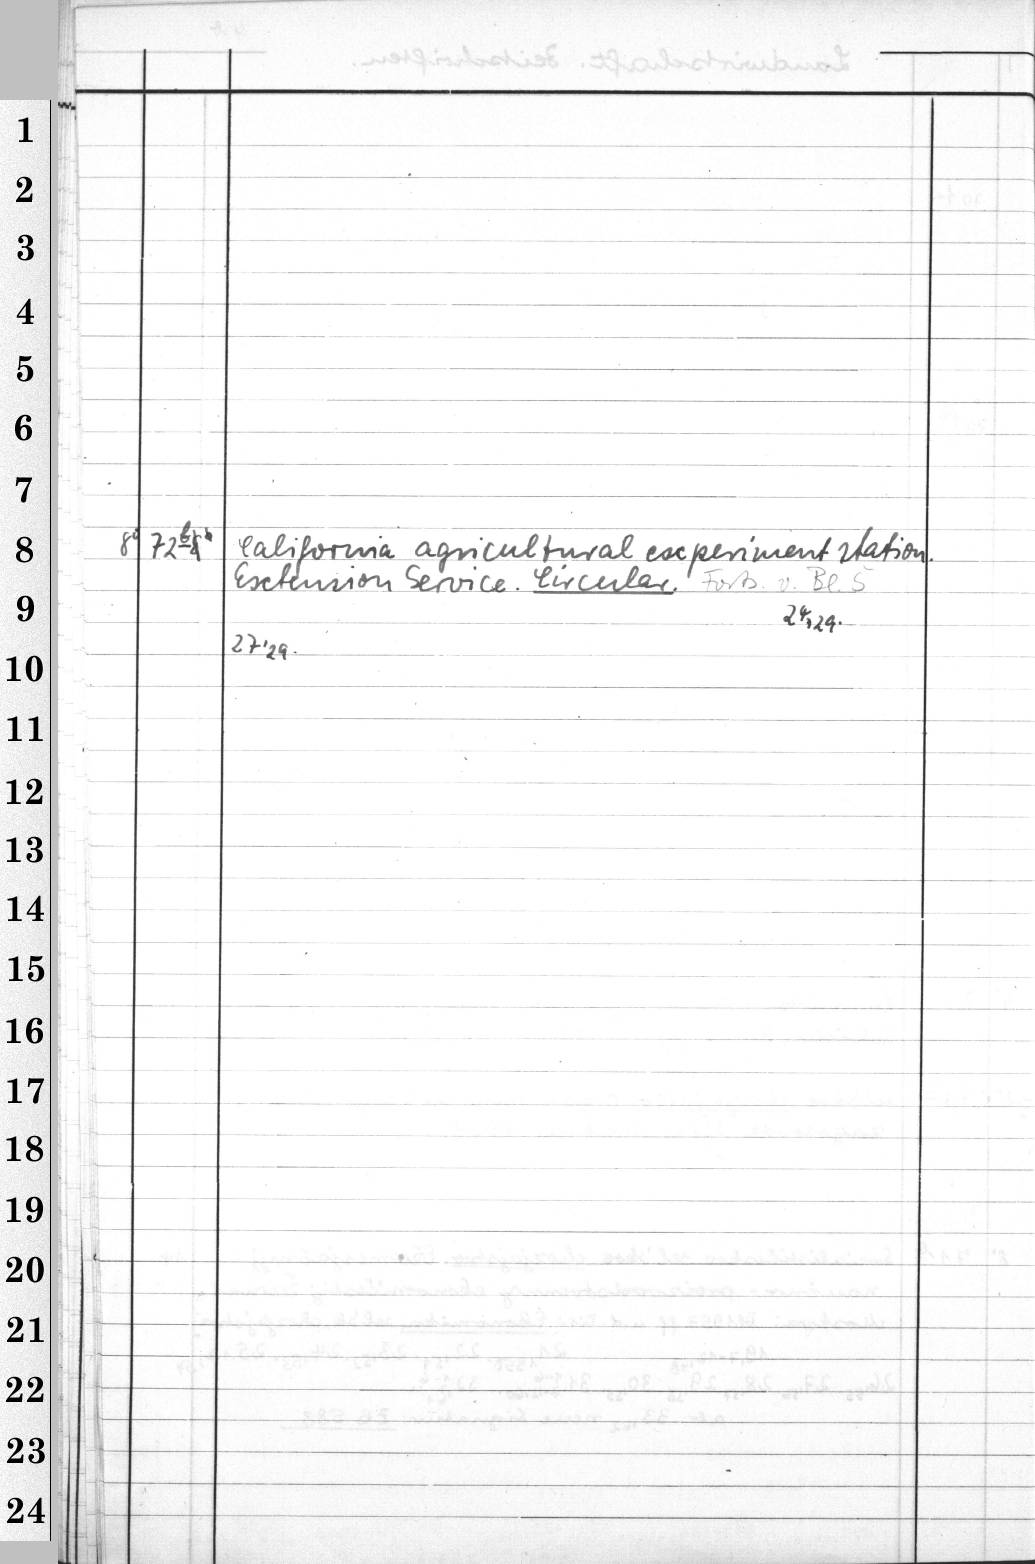 1
2
3
4
5
6
7
8
8° 72 California agricultural experiment station.
Extension Service. Circular. Forts. v. Bl. 5
9
24,29.
27'29.
10
11
12
13
14
15
16
17
18
19
20
21
22
23
24